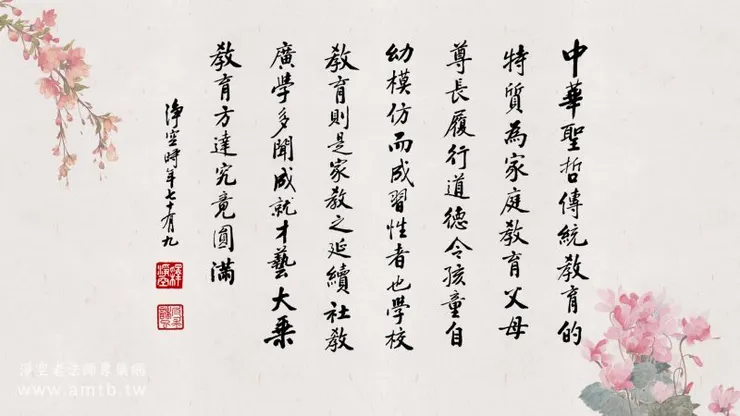 中華聖哲傳統教育的
特質為家庭教育父母
尊長履行道德令孩童自
幼模仿而成習性者也學校
教育則是家教之延續社教
廣學多聞成就才藝大乘
教育方達究竟圓滿
淨空時年七十有九
淨空老法師專集網
www.amtb.tw